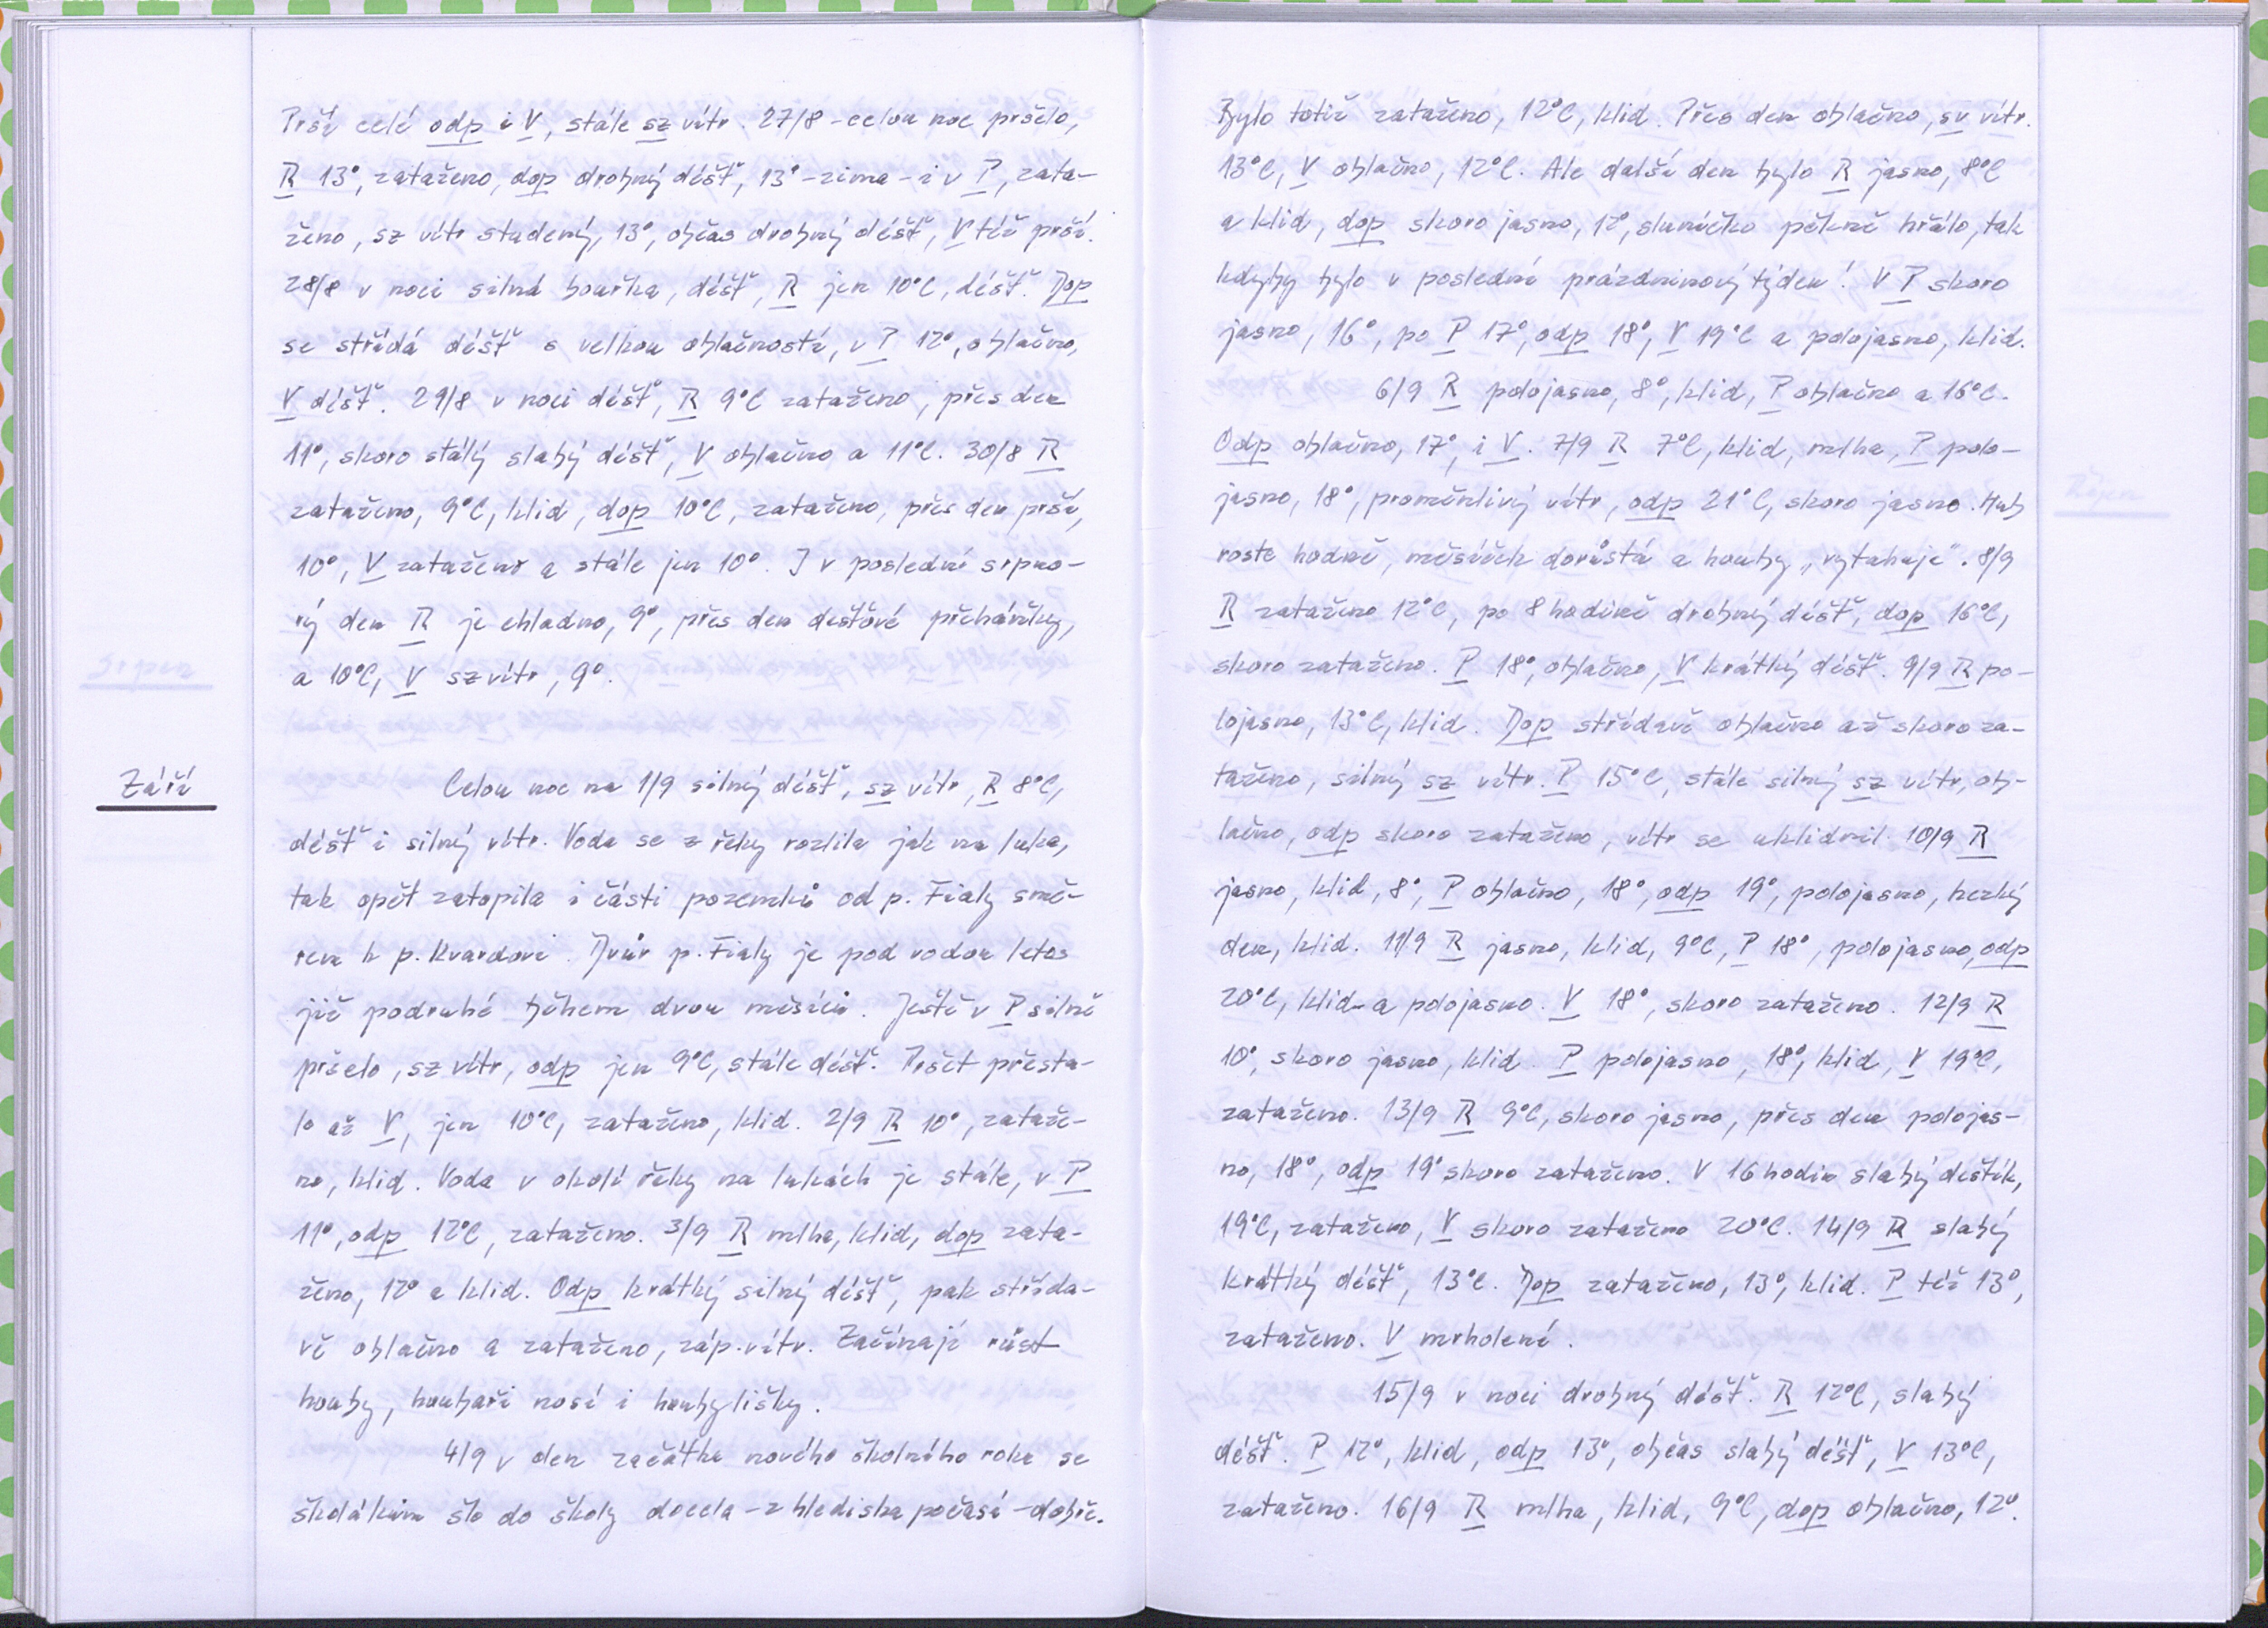 Prší celé odp i V, stále sz vítr. 27/8 - celou noc pršelo,
R 13°, zataženo, dop drobný déšť, 13° - zima - i v P, zata-
ženo, sz vítr studený, 13°, občas drobný déšť, V též prší.
28/8 v noci silná bouřka, déšť, R jen 10°C, déšť. Dop
se střídá déšť s velkou oblačností, v P 12°, oblačno,
V déšť. 29/8 v noci déšť, R 9°C zataženo, přes den
11°, skoro stálý slabý déšť, V oblačno a 11°C. 30/8 R
zataženo, 9°C, klid, dop 10°C, zataženo, přes den prší,
10°, V zataženo a stále jen 10°. I v poslední srpno-
vý den R je chladno, 9°, přes den dešťové přeháňky,
a 10°C, V sz vítr, 9°.
Září
Celou noc na 1/9 silný déšť, sz vítr, R 8°C,
déšť i silný vítr. Voda se z řeky rozlila jak na luka,
tak opět zatopila i části pozemků od p. Fialy smě-
rem k p. Kvardovi. Dvůr p. Fialy je pod vodou letos
již podruhé během dvou měsíců. Ještě v P silně
pršelo, sz vítr, odp jen 9°C, stále déšť. Pršet přesta-
lo až V, jen 10°C, zataženo, klid. 2/9 R 10°, zataže-
no, klid. Voda v okolí řeky na lukách je stále, v P
11°, odp 12°C, zataženo. 3/9 R mlha, klid, dop zata-
ženo, 12° a klid. Odp krátký silný déšť, pak střída-
vě oblačno a zataženo, záp. vítr. Začínají růst
houby, houbaři nosí i houby lišky.
4/9 v den začátku nového školního roku se
školákům šlo do školy docela - z hlediska počasí - dobře.
Bylo totiž zataženo, 12°C, klid. Přes den oblačno, sv vítr.
13°C, V oblačno, 12°C. Ale další den bylo R jasno, 8°C
a klid, dop skoro jasno, 12°, sluníčko pěkně hřálo, tak
kdyby bylo v poslední prázdninový týden! V P skoro
jasno, 16°, po P 17°, odp 18°, V 19°C a polojasno, klid.
6/9 R polojasno, 8°, klid, P oblačno a 16°C.
Odp oblačno, 17°, i V. 7/9 R 7°C, klid, mlha, P polo-
jasno, 18°, proměnlivý vítr, odp 21°C, skoro jasno. Hub
roste hodně, měsíček dorůstá a houby „vytahuje". 8/9
R zataženo 12°C, po 8 hodině drobný déšť, dop 16°C,
skoro zataženo. P 18°, oblačno, V krátký déšť. 9/9 R po-
lojasno, 13°C, klid. Dop střídavě oblačno až skoro za-
taženo, silný sz vítr. P 15°C, stále silný sz vítr, ob-
lačno, odp skoro zataženo, vítr se uklidnil. 10/9 R
jasno, klid, 8°, P oblačno, 18°, odp 19°, polojasno, hezký
den, klid. 11/9 R jasno, klid, 9°C, P 18°, polojasno, odp
20°C, klid a polojasno. V 18°, skoro zataženo. 12/9 R
10°, skoro jasno, klid. P polojasno, 18°, klid, V 19°C,
zataženo. 13/9 R 9°C, skoro jasno, přes den polojas-
no, 18°, odp 19° skoro zataženo. V 16 hodin slabý deštík,
19°C, zataženo, V skoro zataženo 20°C. 14/9 R slabý
krátký déšť, 13°C. Dop zataženo, 13°, klid. P též 13°,
zataženo. V mrholení.
15/9 v noci drobný déšť. R 12°C, slabý
déšť. P 12°, klid, odp 13°, občas slabý déšť, V 13°C,
zataženo. 16/9 R mlha, klid, 9°C, dop oblačno, 12°.